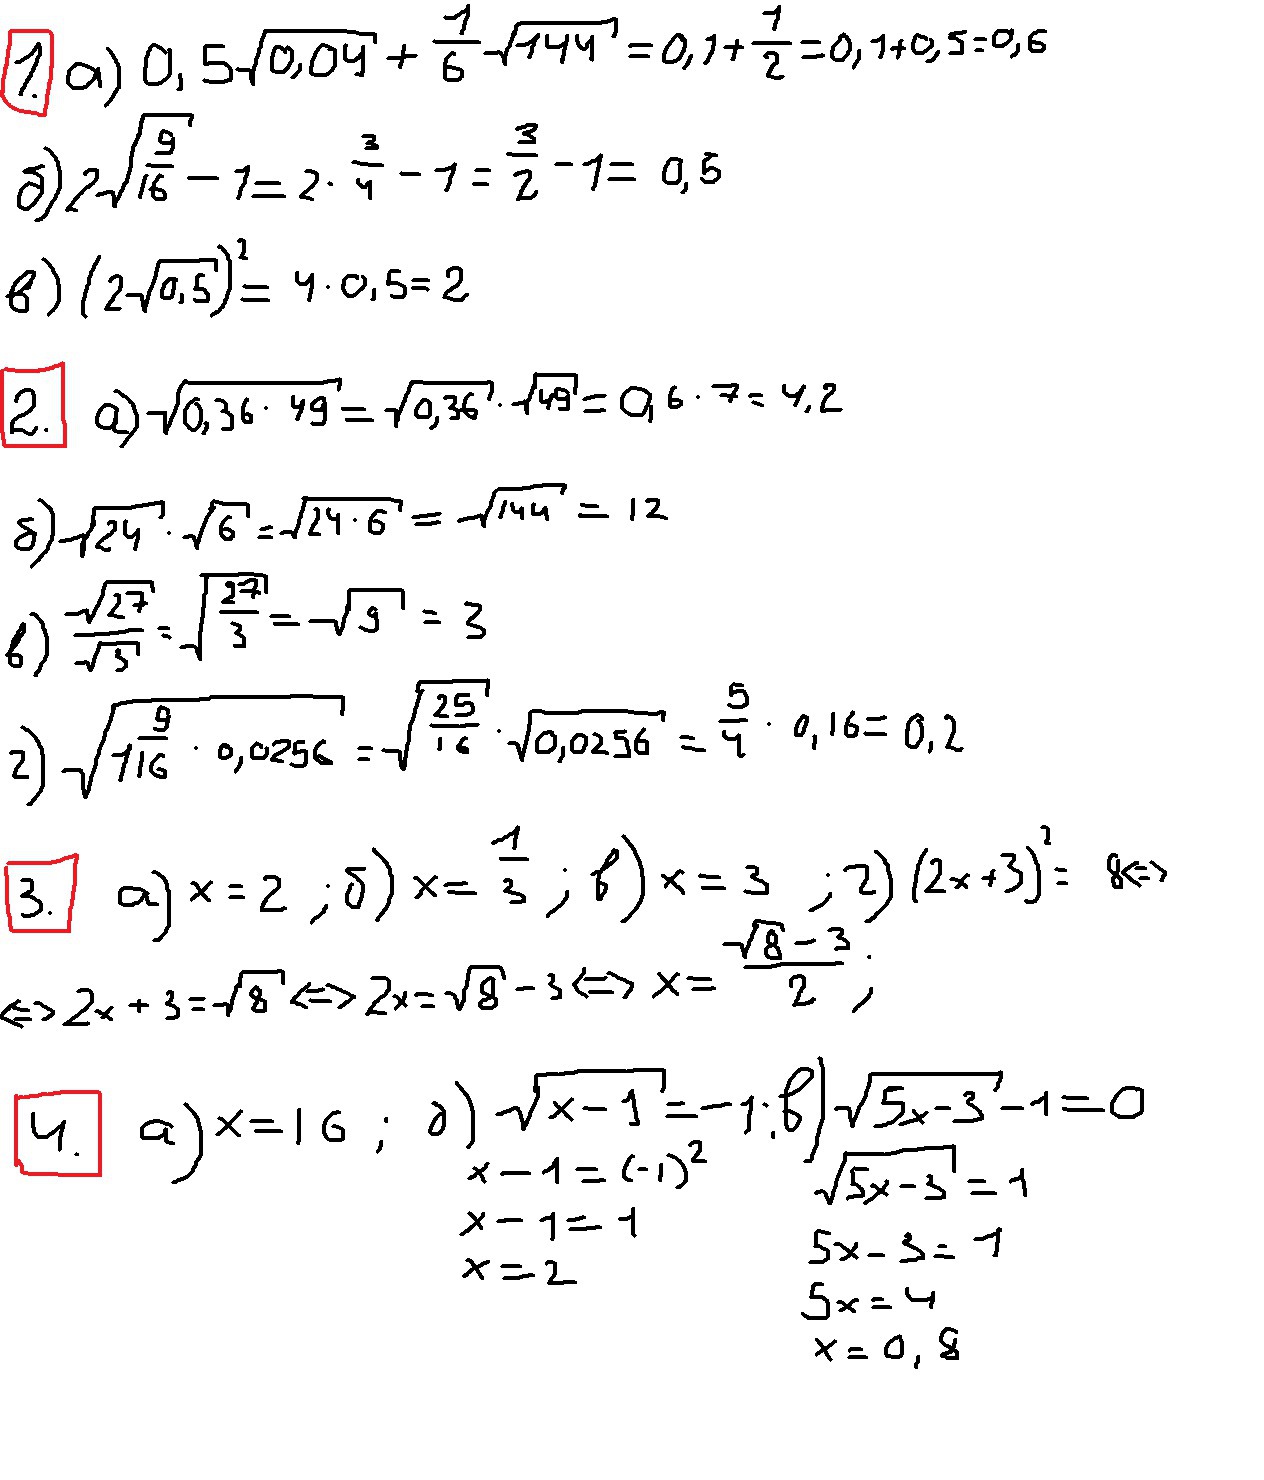 1. а) 0,5√0,04 + 1/6 √144 = 0,1 + 1/2 = 0,1+0,5=0,6
б) 2√(9/16) - 1 = 2 · 3/4 - 1 = 3/2 - 1 = 0,5
в) (2√0,5)² = 4 · 0,5 = 2
2. а) √(0,36 · 49) = √0,36 · √49 = 0,6 · 7 = 4,2
б) √24 · √6 = √(24 · 6) = √144 = 12
в) √27/√3 = √(27/3) = √9 = 3
г) √(1 9/16 · 0,0256) = √(25/16) · √0,0256 = 5/4 · 0,16 = 0,2
3. а) x = 2 ; б) x = 1/3 ; в) x = 3 ; г) (2x+3)² = 8 <=>
<=> 2x + 3 = √8 <=> 2x = √8 - 3 <=> x = (√8 - 3)/2 ;
4. а) x = 16 ; б) √(x - 1) = -1 ; в) √(5x - 3) - 1 = 0
x - 1 = (-1)² √(5x - 3) = 1
x - 1 = 1 5x - 3 = 1
x = 2 5x = 4
x = 0,8